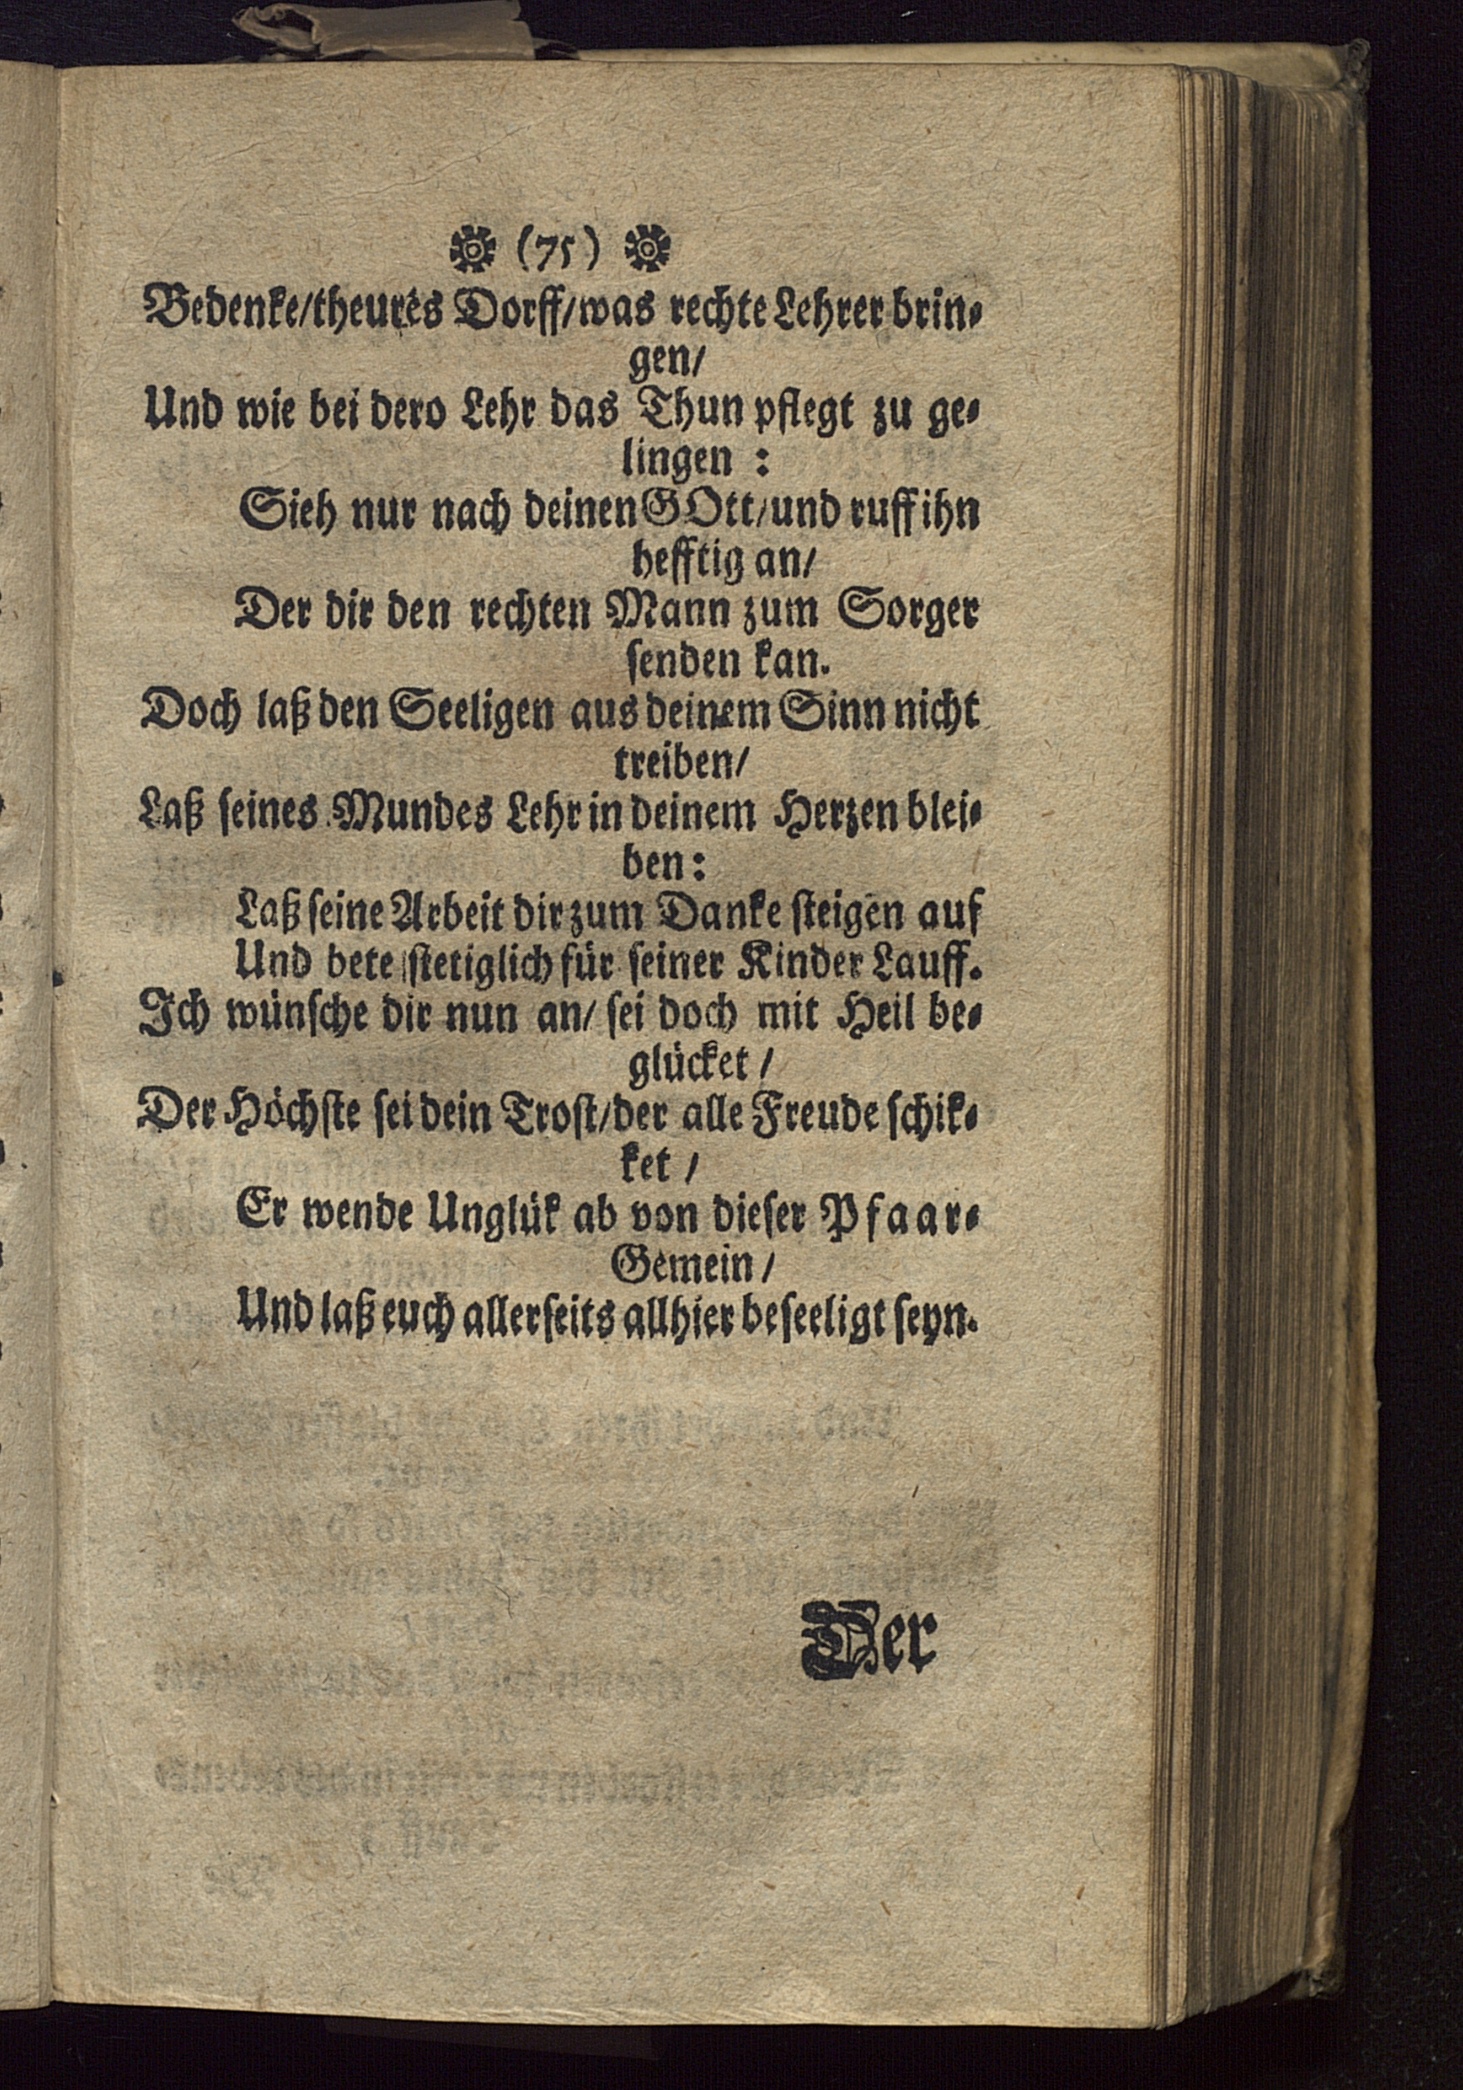 (75)
Bedenke/theures Dorff/was rechte Lehrer brin-
gen/
Und wie bei dero Lehr das Thun pflegt zu ge-
lingen :
Sieh nur nach deinen GOtt/und ruff ihn
hefftig an/
Der dir den rechten Mann zum Sorger
senden kan.
Doch laß den Seeligen aus deinem Sinn nicht
treiben/
Laß seines Mundes Lehr in deinem Herzen blei-
ben:
Laß seine Arbeit dir zum Danke steigen auf
Und bete stetiglich für seiner Kinder Lauff.
Ich wünsche dir nun an/ sei doch mit Heil be-
glücket /
Der Höchste sei dein Trost/der alle Freude schik-
ket /
Er wende Unglük ab von dieser Pfaar-
Gemein /
Und laß euch allerseits allhier beseeligt seyn.
Der